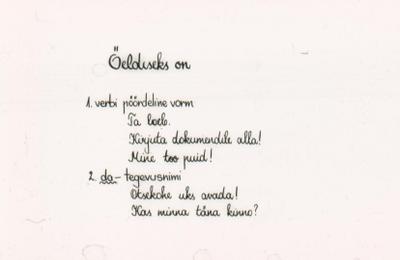 Öeldiseks on
1. verbi pöördeline vorm
Ta loeb.
Kirjuta dokumendile alla!
Mine too puid!
2. da-tegevusnimi
Otsekohe uks avada!
Kas minna täna kinno?